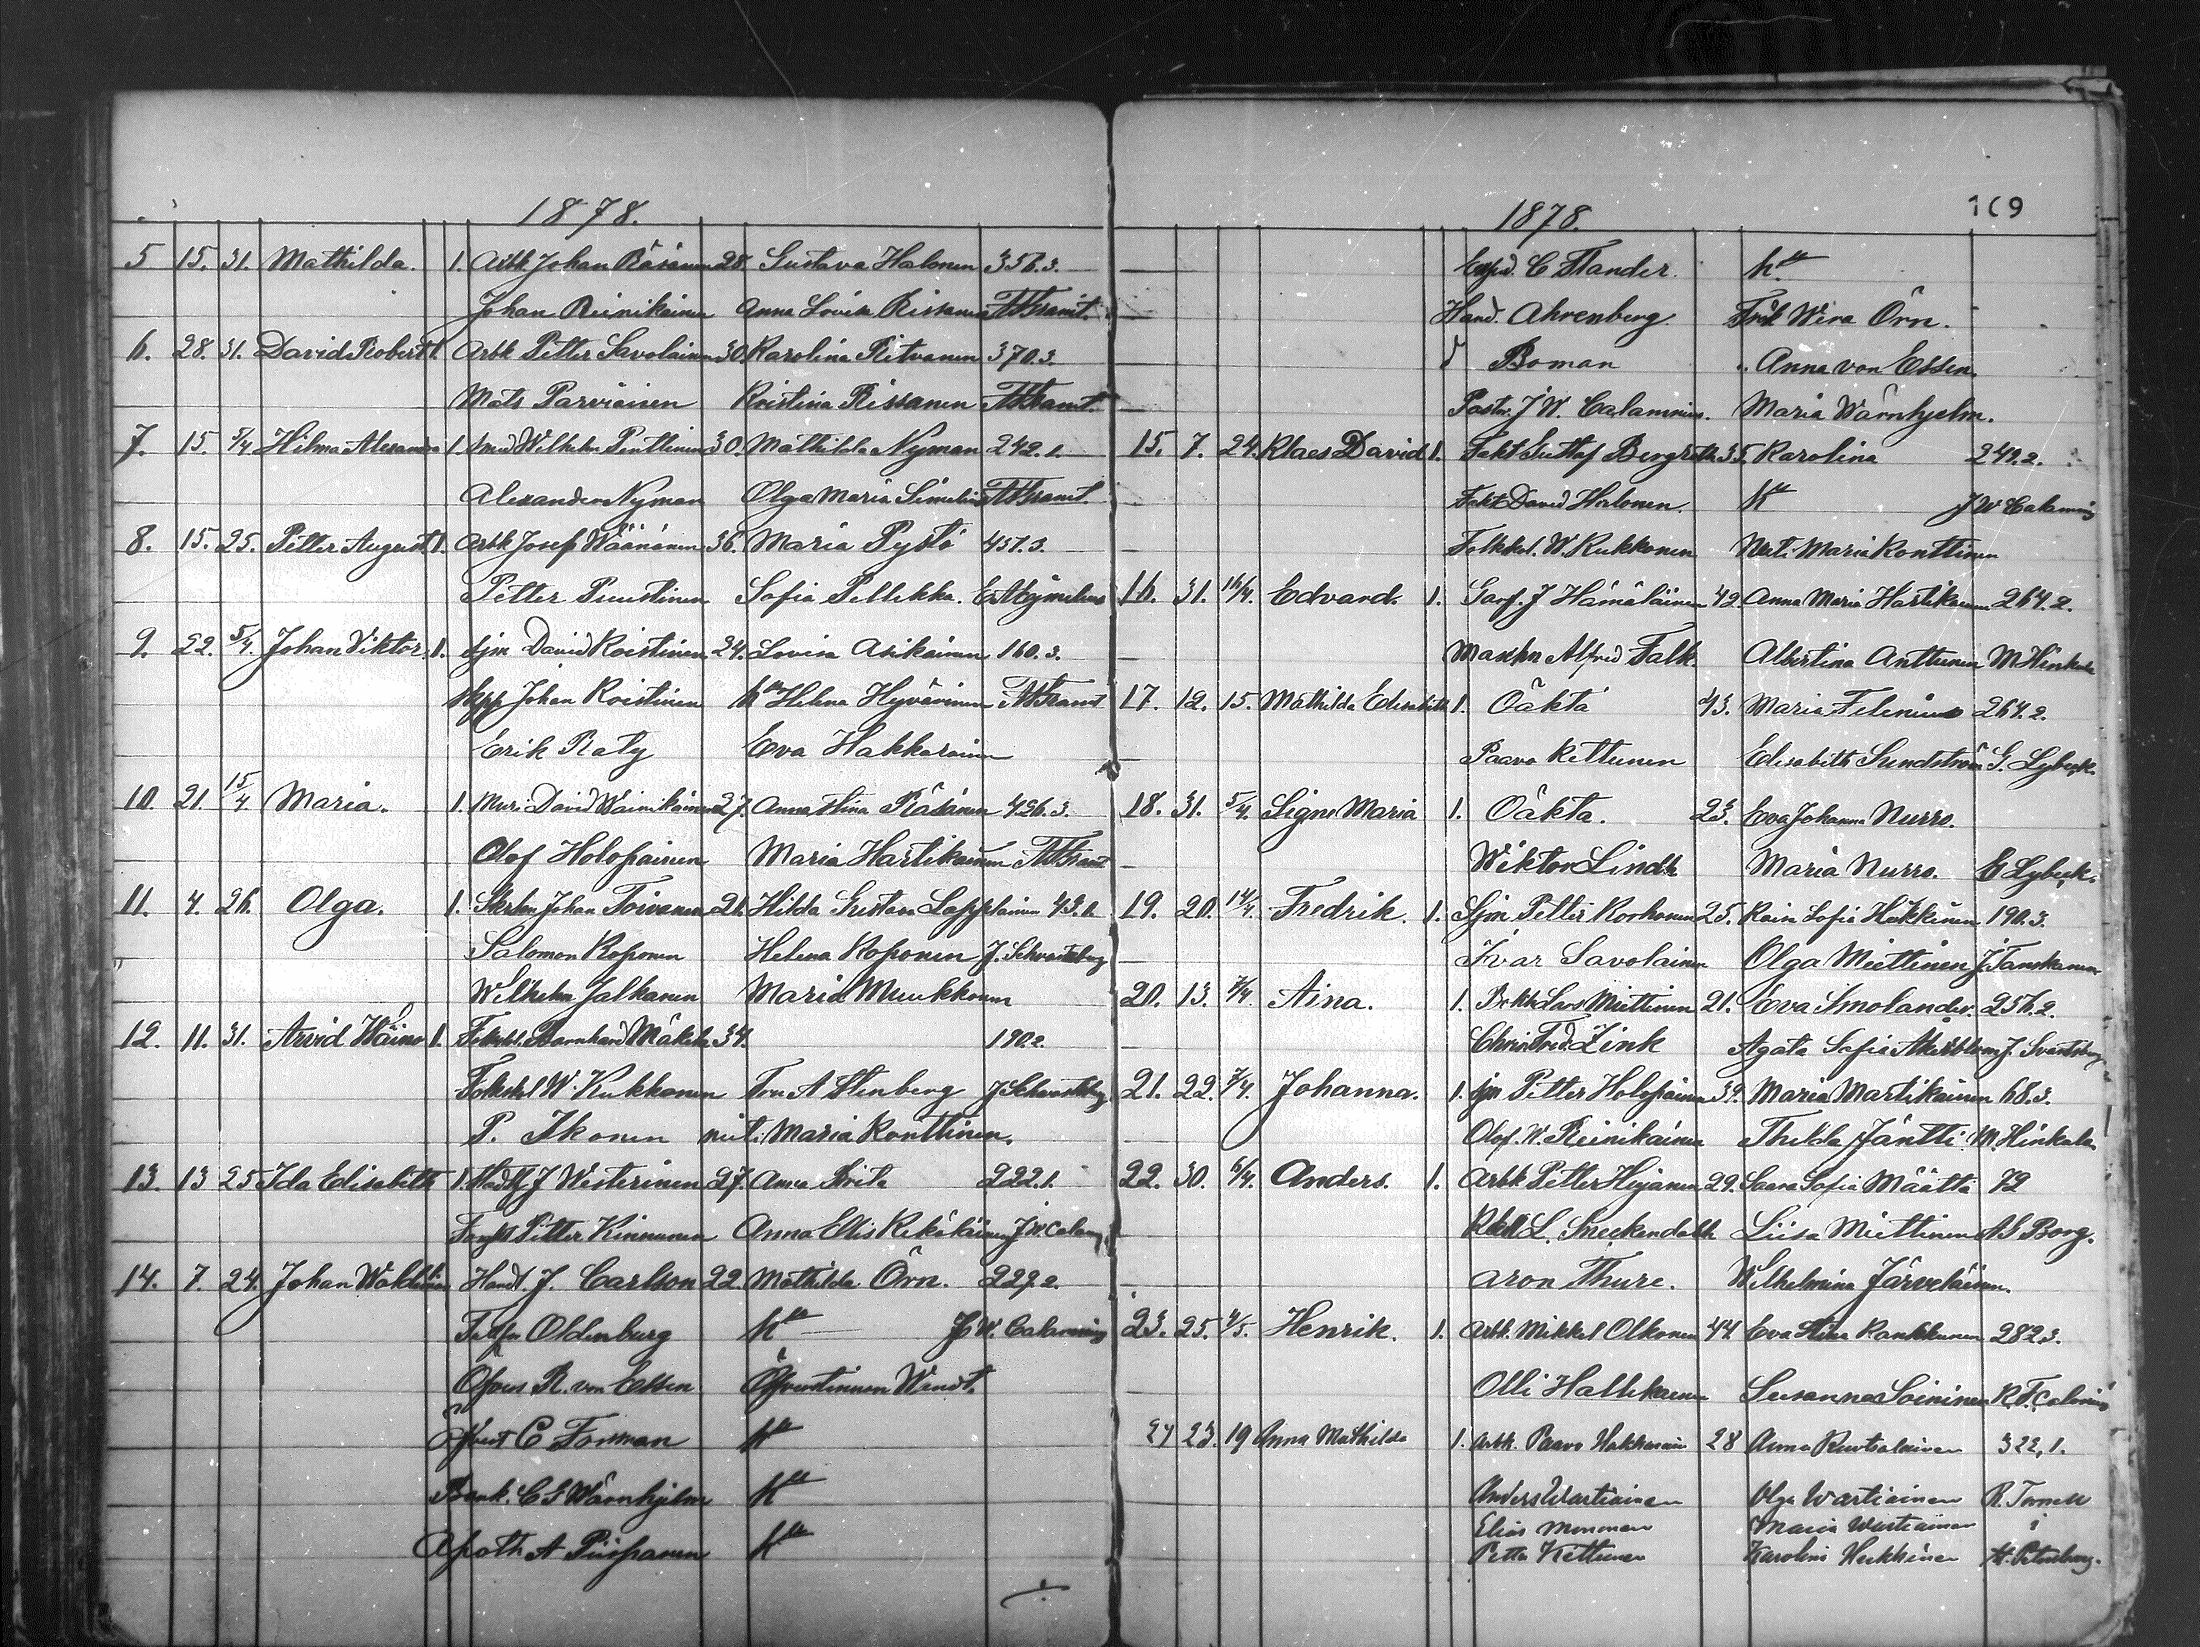 1878.
5 15. 31. Mathilda. 1. Arbk Johan Räsänen 28. Gustava Halonen 356.3.
Johan Reinikainen Anna Lovisa Rissanen
6. 28. 31. David Robert 1. Arbk Petter Savolainen 30. Karolina Ritvanen 370.3.
Mats Parviainen Kristina Rissanen
7. 15. 5/4 Hilma Alexandra 1. Smed Wilhelm Penttinen 30. Mathilda Nyman 242.1.
Alexander Nyman Olga Maria Simelius
8. 15. 25. Petter August 1. Arbk Josef Väänänen 36. Maria Pystö 457.3.
Petter Puustinen Sofia Pellikka.
9. 22. 5/4. Johan Viktor. 1. Sjm David Koistinen 24. Lovisa Asikainen 160.3.
Skpp Johan Koistinen Hu Helena Hyvärinen
Erik Räty Eva Hakkarainen
10. 21. 15/4 Maria. 1. Mura. David Wäinikäinen 27. Anna Stina Räsänen 426.3.
Olof Holopainen Maria Hartikainen
11. 4. 26. Olga. 1. Johan Toivanen 26. Hilda Gustava Lappalainen 43.1.
Salomon Koponen Helena Koponen J. Schvartzberg
Wilhelm Jalkanen Maria Muukkonen
12. 11. 31. Arvid Wäinö 1. Barnhard Mäkelä 34. 190.2.
Folkskl W. Kukkonen Fru A Stenberg J Schvartzberg
P. Ikonen Maria Konttinen.
13. 13 25 Ida Elisabeth 1. J Westerinen 27. Anna Brita 222.1.
Petter Kinnunen Anna Elis J W Calamnius
14. 7. 24. Johan Waldemar Handl. J. Carlson 22. Mathilda Örn. 222.2.
Oldenburg Hu J W. Calamnius
R. von Essen Öfverstinnan Wendt.
C Forsman Hu
C G Wärnhjelm Hu
Apoth A Piispanen Hu
1878. 169
C Stander. Hu
Hand. Ahrenberg. Frök Wera Örn.
d Boman " Anna von Essen.
Pastor. J W. Calamnius. Maria Wärnhjelm.
15. 7. 24. Klaes David 1. Fakt Gustaf Bergroth 35. Karolina 242.2.
Fakt David Halonen. Hu J W Calamnius
Folkskl. W. Kukkonen Maria Konttinen
16. 31. 16/4. Edvard. 1. Garf. J Hämäläinen 42. Anna Maria Hartikainen 264.2.
Alfred Falk. Albertina Anttunen M Hinkula
17. 12. 15. Mathilda Elisabeth 1. Oäkta 43. Maria Felenius 264.2.
Paavo Kettunen Elisabeth Sundström G. Lybeck.
18. 31. 5/4. Signe Maria 1. Oäkta. 23. Eva Johanna Nurro.
Wiktor Lindh Maria Nurro. G Lybeck.
19. 20. 14/4. Fredrik. 1. Sjm Petter Korhonen 25. Sofia Hakkarainen 190.3.
Ivar Savolainen Olga Miettinen J. Tanskanen
20. 13. 7/4. Aina. 1. Bokh Lars Miettinen 21. Eva Smolander. 256.2.
Zink Agata Sofia Åkerblom J. Svartzberg
21. 22. 7/4. Johanna. 1. Sjm Petter Holopainen 39. Maria Martikainen 68.3.
Olof. W. Reinikainen Thilda Jäntti M. Hinkula
22. 30. 6/4. Anders. 1. Arbk Petter 29. Saara Sofia Määttä 72
L. Sneckendahl Liisa Miettinen A G Borg.
Aron Thure. Wilhelmina Järveläinen.
23. 25. 4/5. Henrik. 1. Arbk. Mikkel Olkonen 44. Eva Stina Pankkunen 282.3.
Olli Hallikainen Susanna Soininen Calamnius
24 23. 19 Anna Mathilda 1. Arbk. Paavo Hakkarain 28 Anna Ruotsalainen 322,1.
Anders Wartiainen Olga Wartiainen R. Tornell
Elias Mononen Maria Wartiainen i
Petter Kettunen Karolina Heikkinen St. Petersburg.